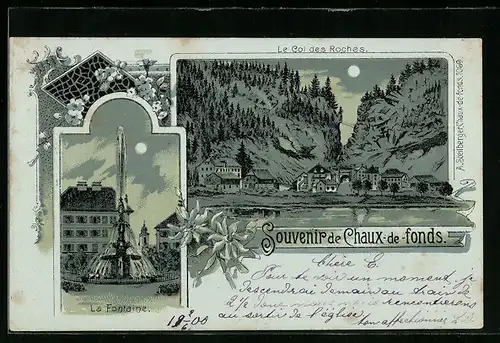 Le Col des Roches.
A. Sodlberger Chaux-de-fonds. 1069.
La Fontaine.
Souvenir de Chaux-de-fonds.
Chère E.
Pour te voir un moment, je
descendrai demain au train de
2 1/2 donc nous nous rencontrerons
au sortir de l'église
ton affectionnée
18 2/6 00